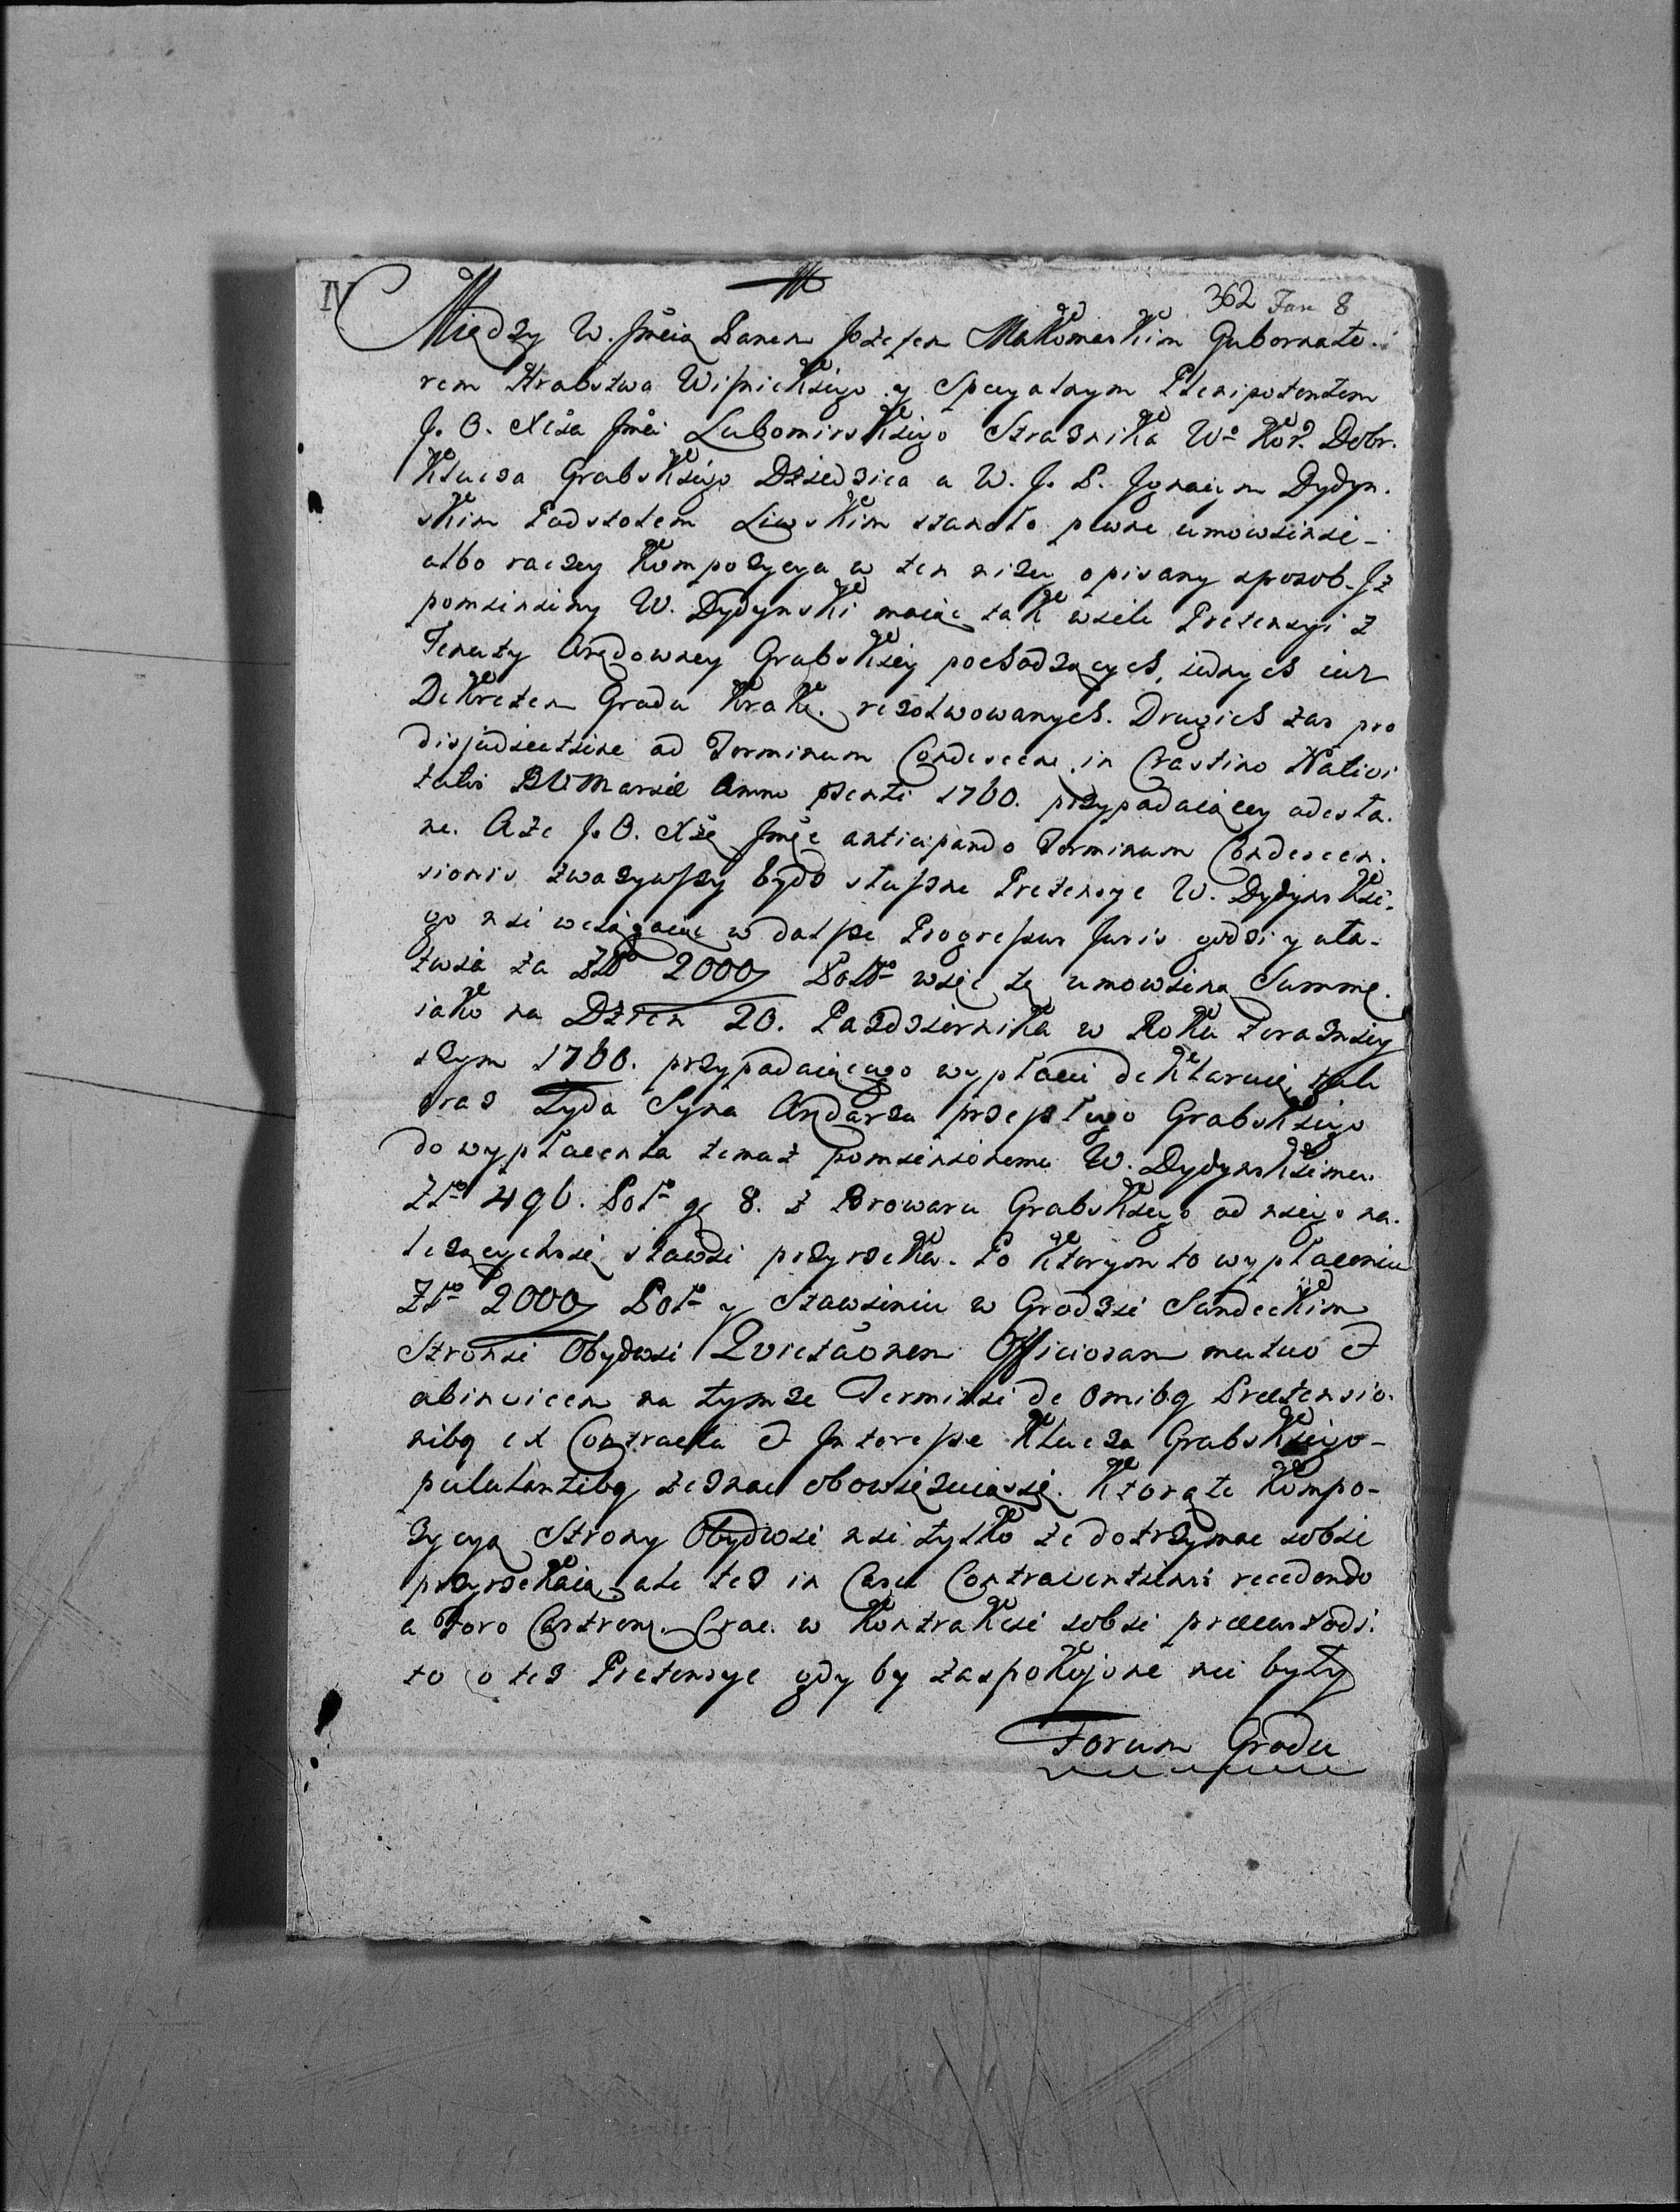 IV
362 Fasc 8
Między W. Jmcią Panem Jozefem Makomaskim Gubernato-
rem Hrabstwa Wisnickiego y Specyalnym Plenipotentem
J. O. Xcia Jmci Lubomirskiego Straznika Wo Kor. Dobr.
Klucza Grabskiego Dziedzica a W. J. P. Jgnacym Dydyn-
skim Podstolem Liwskim staneło pewne umowienie
albo raczey Kompozycya w ten nizey opisany sposob. Jz
pomieniony W. Dydynski maiąc tak wiele Pretensyi z
Tenuty Arędowney Grabskiey pochodzących, iednych iuz
Dekretem Grodu Krak. rezolwowanych. Drugich zas pro
disjudicatione ad Terminum Condescens. in Crastino Nativi
tatis BVMariæ Anno psenti 1760. przypadaiącey odesta-
ne. A ze J. O. Xżę Jmć anticipando Terminum Condescen-
sionis zwazywszy bydz słuszne Pretensye W. Dydynskie-
go nie wciągaiąc w dalsze Progressus Juris godzi y ula-
twia za Zło 2000 Polo więc tę umowioną Summę
iako na Dzien 20. Pazdziernika w Roku terazniey
szym 1760. przypadaiącego wypłacić deklaruie, tak
oraz Zyda Syna Andarza przeszłego Grabskiego
do wypłacenia temuz pomienionemu W. Dydynskiemu
Zło 496. Polo gr 8. z Browaru Grabskiego od niego na-
lezących się stawić przyrzeka. Po ktorym to wypłaceniu
Złto 2000 Polo y Stawieniu w Grodzie Sandeckim
Stronie Obydwie Quietaõnem Officiosam mutuo et
abinvicem na tymze Terminie de omibq Prætensio-
nibq ex Contractu et Interesse Klucza Grabskiego
pululantibq zeznac obowięzuią się. Ktorą te Kompo-
zycyą Strony Obydwie nie tylko ze dotrzymac sobie
przyrzekaią, ale tez in Casu Contraventionis recedendo
a Foro Castren. Crac. w Kontrakcie sobie præcustodi-
to o tez Pretensye gdy by zaspokojone nie były
Forum Grodu